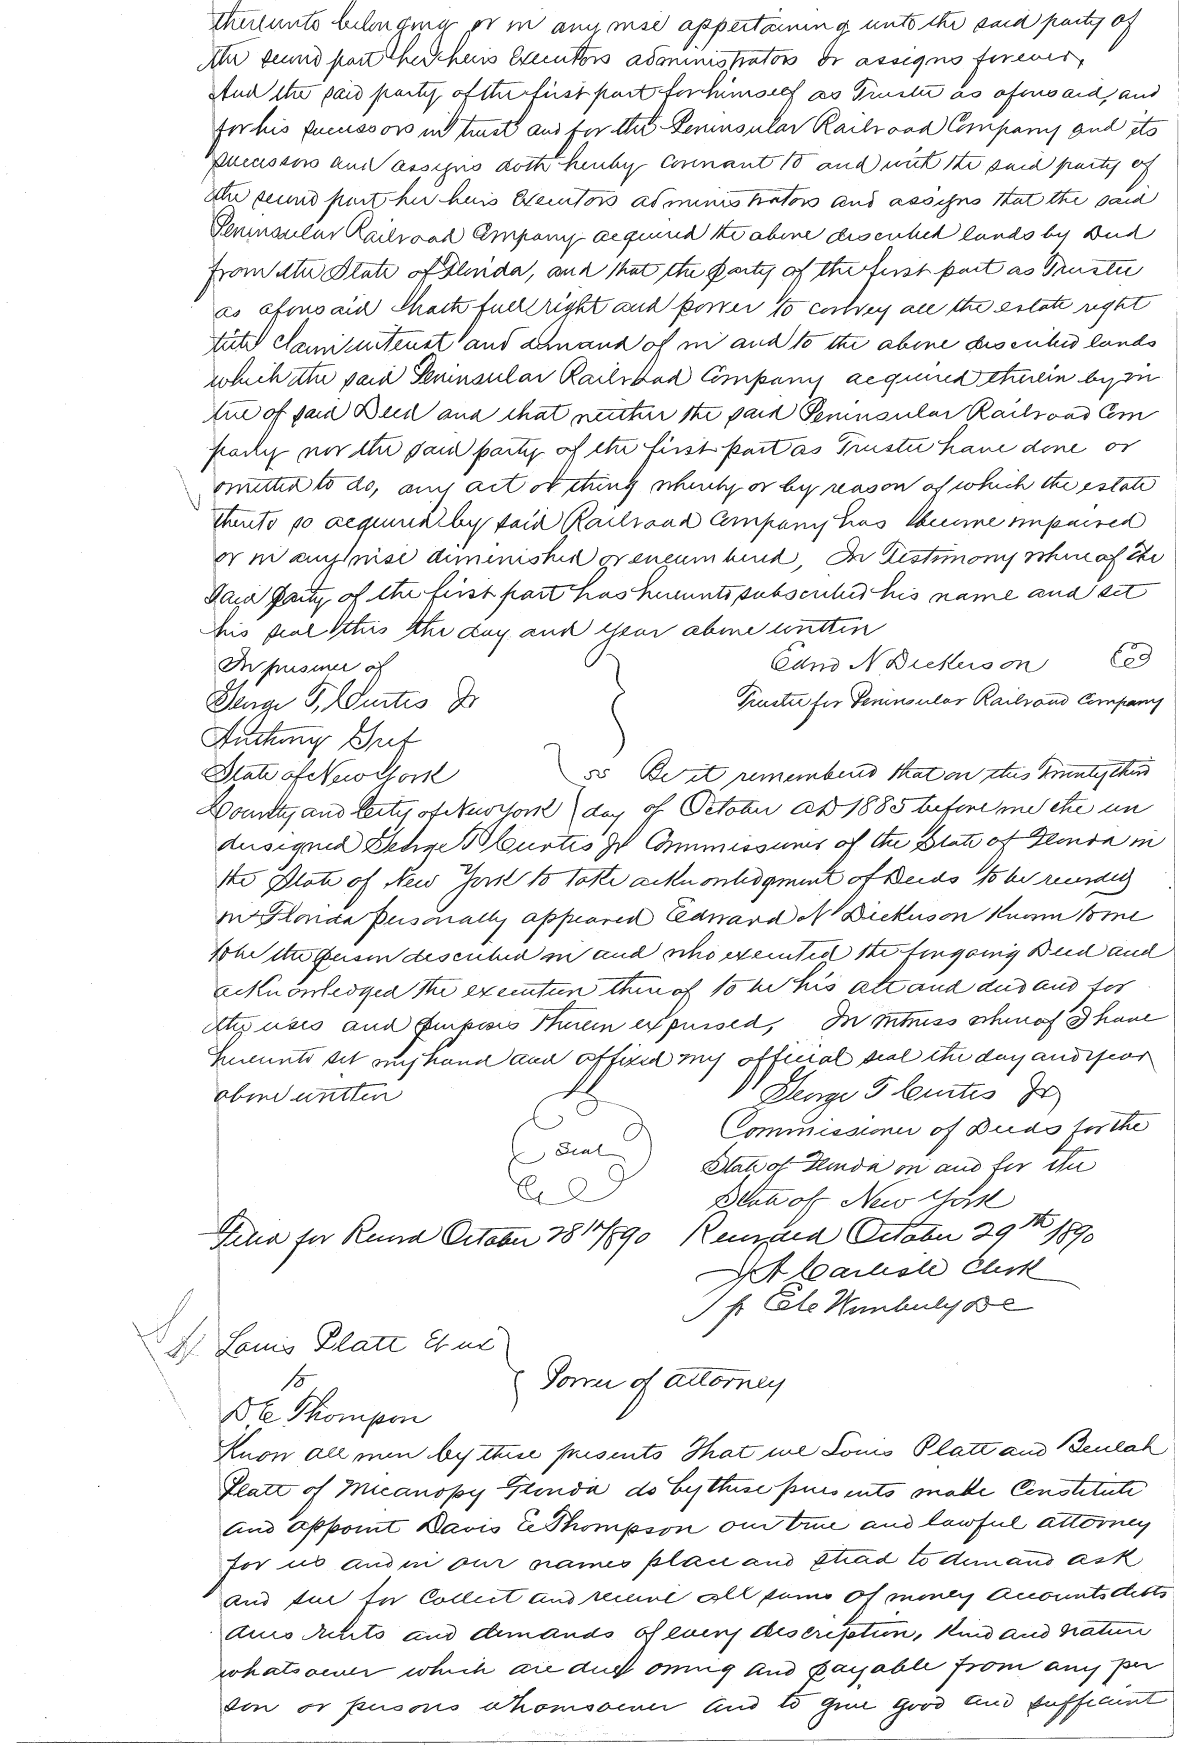 thereunto belonging or in any wise appertaining unto the said party of
the second part her heirs Executors administrators or assigns forever,
And the said party of the first part for himself as Trustee as aforesaid, and
for his successors in trust and for the Peninsular Railroad Company and its
successors and assigns doth hereby covenant to and with the said party of
the second part her heirs Executors administrators and assigns that the said
Peninsular Railroad Company acquired the above described lands by Deed
from the State of Florida, and that the party of the first part as Trustee
as aforesaid hath full right and power to convey all the estate right
title claim interest and demand of in and to the above described lands
which the said Peninsular Railroad Company acquired therein by vir
tue of said Deed and that neither the said Peninsular Railroad Com
pany nor the said party of the first part as Trustee have done or
omitted to do, any act or thing whereby or by reason of which the estate
thereto so acquired by said Railroad Company has become impaired
or in any wise diminished or encumbered, In Testimony whereof the
said party of the first part has hereunto subscribed his name and set
his seal this the day and year above written
In presence of Edwd N Dickerson
George T, Curtis Jr Trustee for Peninsular Railroad Company
Anthony Gref
State of New York ss Be it remembered that on this Twenty third
County and City of New York day of October AD 1885 before me the un
dersigned George T Curtis Jr Commissioner of the State of Florida in
the State of New York to take acknowledgment of Deeds to be recorded
in Florida personally appeared Edward N Dickerson known to me
to be the person described in and who executed the foregoing Deed and
acknowledged the execution thereof to be his act and deed and for
the uses and purposes therein expressed, In witness whereof I have
hereunto set my hand and affixed my official seal the day and year
above written George T Curtis Jr
Seal Commissioner of Deeds for the
State of Florida in and for the
State of New York
Filed for Record October 28th 1890 Recorded October 29th 1890
J A Carlisle Clerk
pr Wimberly DC
Louis Platt Et ux
to Power of attorney
D E Thompson
Know all men by these presents That we Louis Platt and Beulah
Platt of Micanopy Florida do by these presents make Constitute
and appoint Davis E Thompson our true and lawful attorney
for us and in our names place and stead to demand ask
and sue for Collect and receive all sums of money accounts debts
dues rents and demands of every description, kind and nature
whatsoever which are due owing and payable from any per
son or persons whomsoever and to give good and sufficient